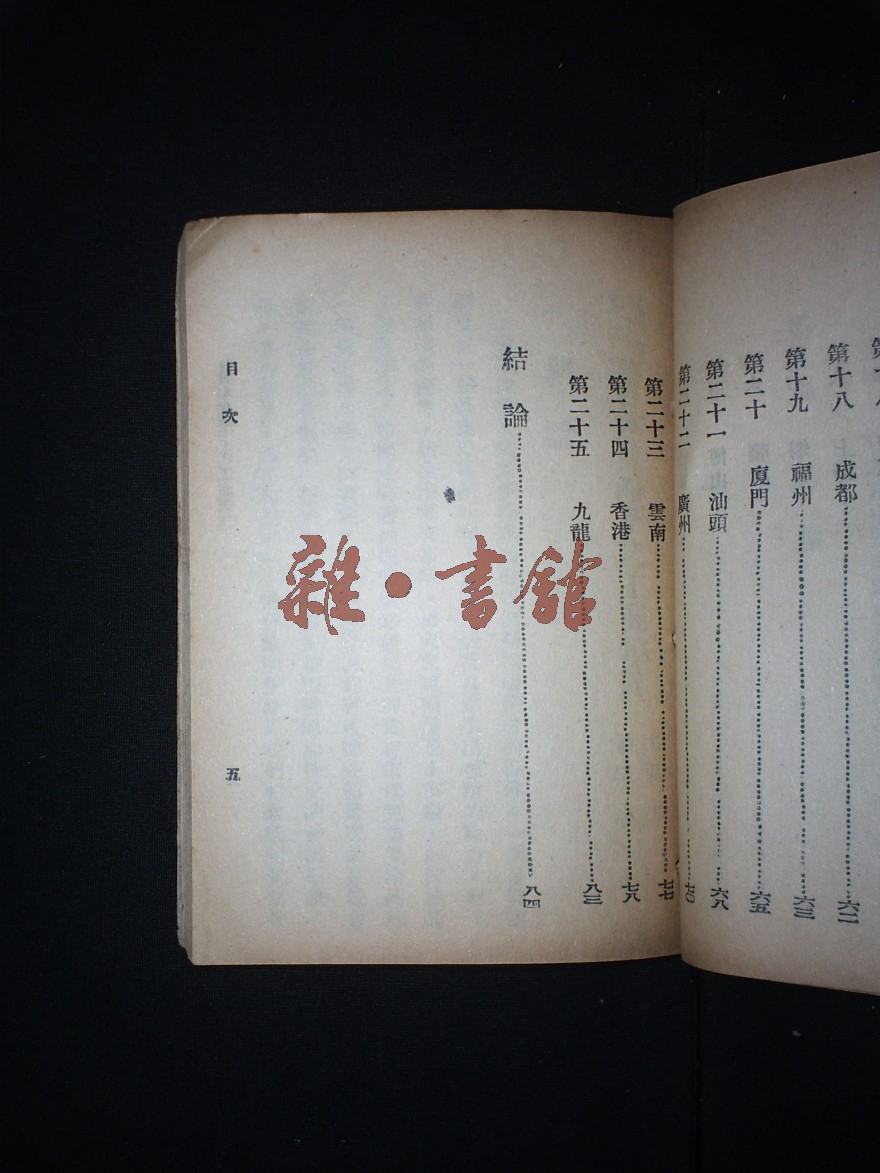 第十八 成都 六二
第十九 福州 六三
第二十 廈門 六五
第二十一 汕頭 六八
第二十二 廣州 七〇
第二十三 雲南 七七
第二十四 香港 七八
第二十五 九龍 八三
結論 八四
目次
五
雜·書館